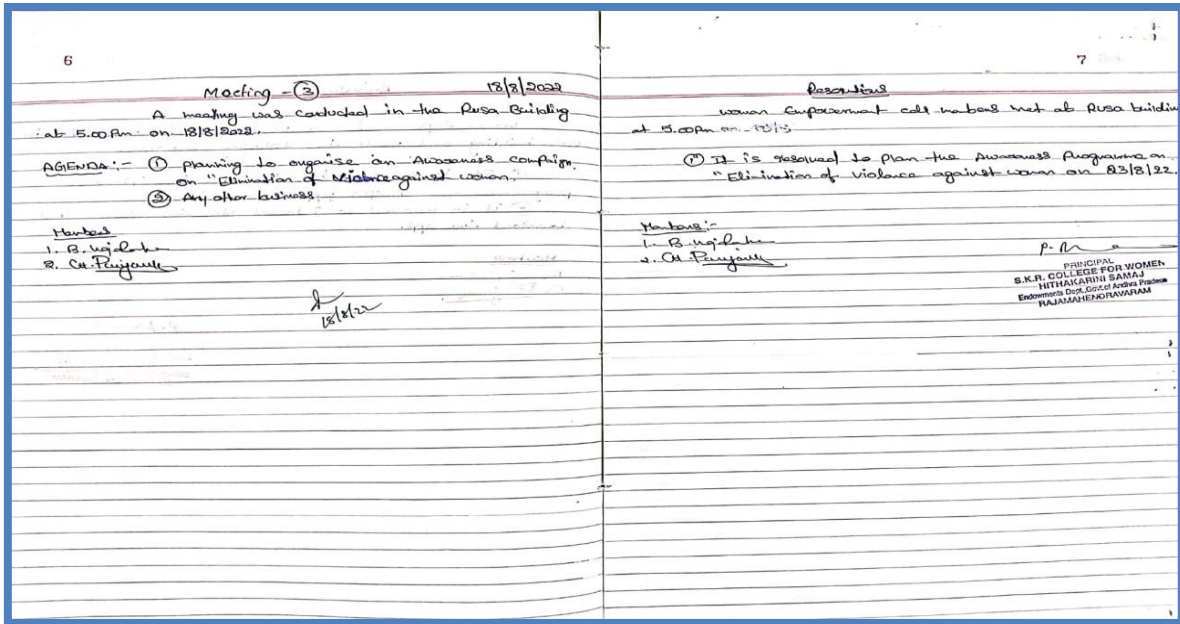 6
Meeting - ③ 18/8/2022
A meeting was conducted in the Rusa Building
at 5.00 Pm on 18/8/2022.
AGENDA :- ① planning to organise an Awareness campaign
on "Elimination of Violence against women.
② Any other business
Members
1. B.
2. CH.
18/8/22
7
Resolutions
women Empowerment cell members met at Rusa buildin
at 5.00 Pm on
① It is resolved to plan the Awareness Programme on
"Elimination of violence against women on 23/8/22.
Members :-
1. B.
2. CH.
PRINCIPAL
S.K.R. COLLEGE FOR WOMEN
HITHAKARINI SAMAJ
Endowments Dept., Govt.of Andhra Pradesh
RAJAMAHENDRAVARAM